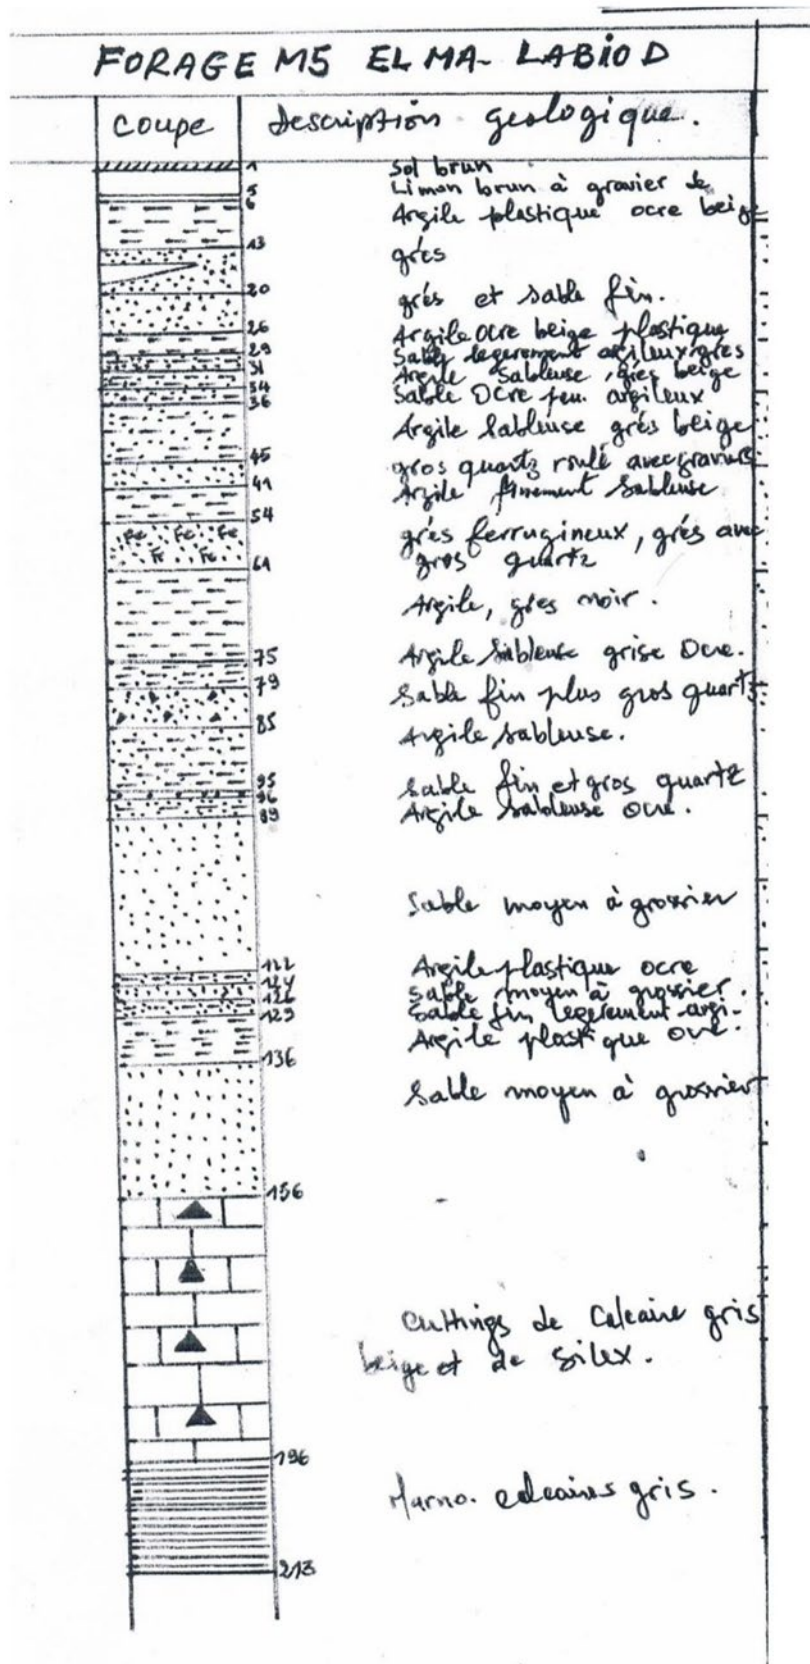 FORAGE M5 EL MA-LABIOD
coupe
description geologique.
1 Sol brun
5 Limon brun à gravier de
6 Argile plastique ocre beige
13 grés
20 grés et sable fin.
26 Argile ocre beige plastique
29 Sable legerement argileux grés
31 Argile Sableuse, grés beige
34 Sable Ocre peu argileux
36
Argile Sableuse grés beige
45 gros quartz roulé avec graviers
49 Argile finement Sableuse
54
grés ferrugineux, grés avec
gros quartz
Fe Fe Fe
Fe Fe
61
Argile, grés noir.
75 Argile Sableuse grise Ocre.
79 Sable fin plus gros quartz
85 Argile sableuse.
95 Sable fin et gros quartz
96 Argile sableuse ocre.
99
Sable moyen à grossier
122 Argile plastique ocre
124 Sable moyen à grossier.
126 Sable fin legerement argi-
129 Argile plastique ocre.
136
Sable moyen à grossier
156
Cuttings de Calcaire gris
beige et de Silex.
196
Marno-calcaires gris.
213